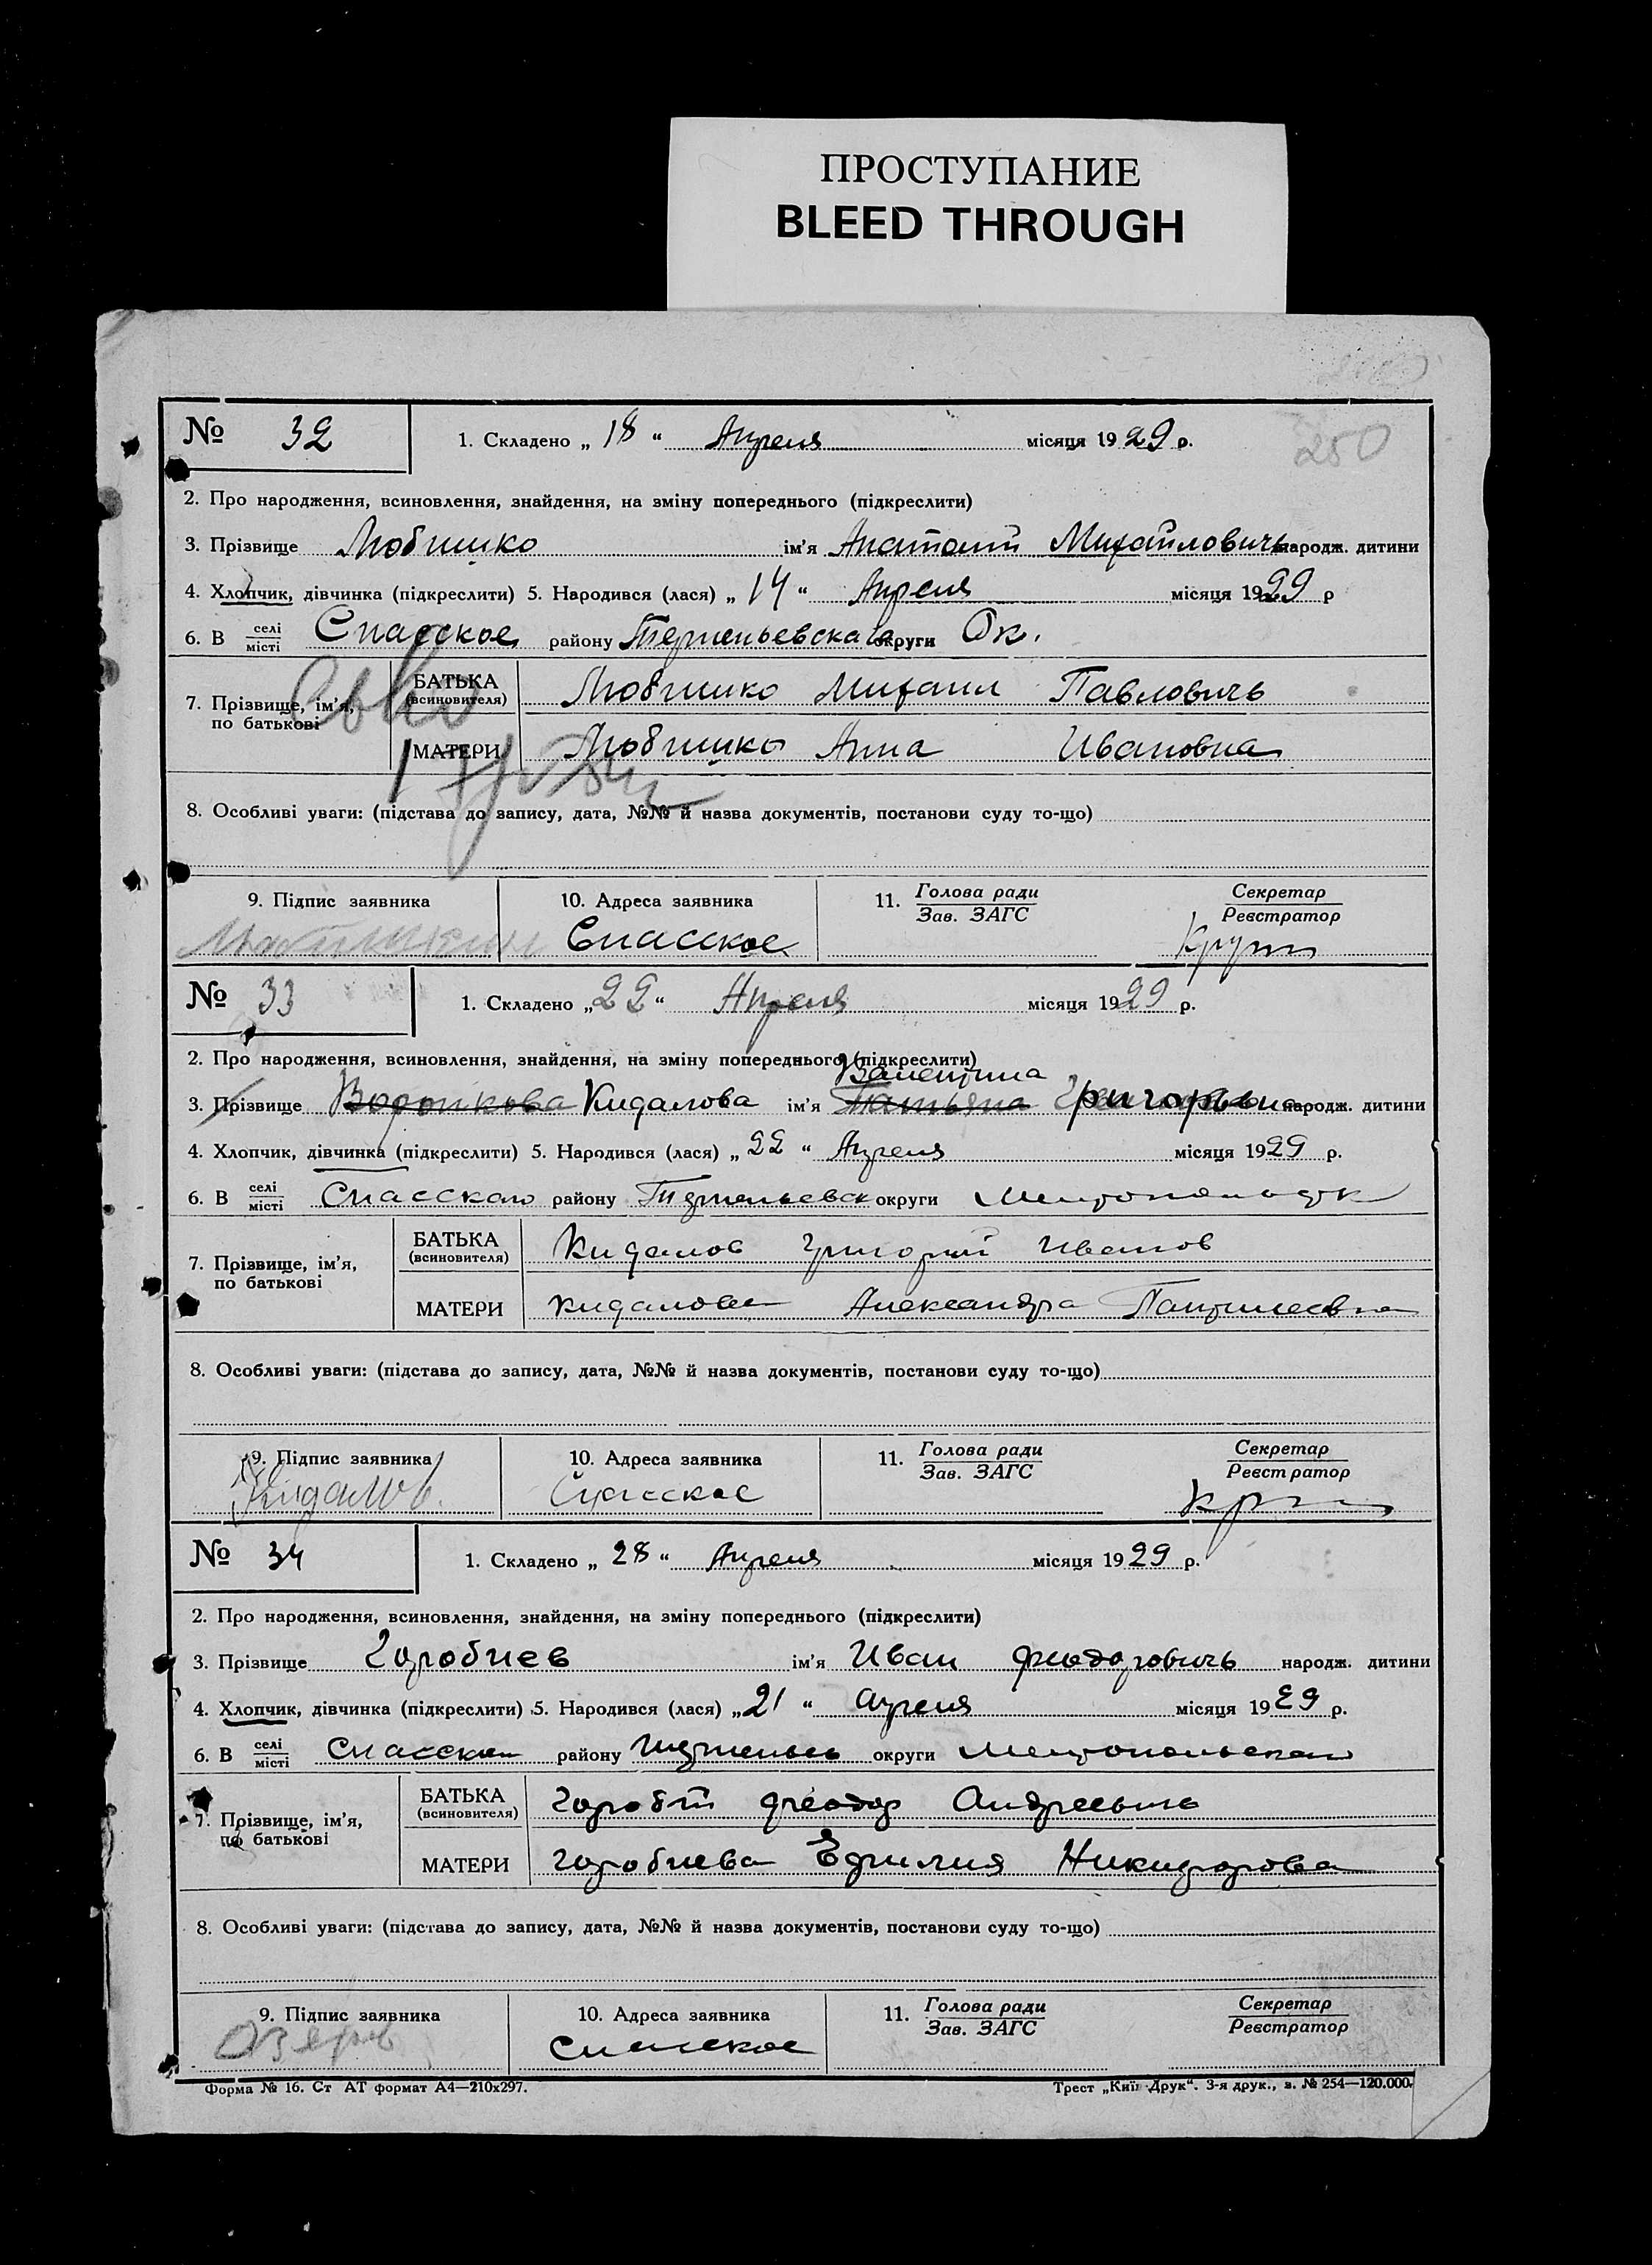 ПРОСТУПАНИЕ
BLEED THROUGH
250
№ 32 1. Складено „ 18 “ Апреля місяця 1929 р.
2. Про народження, всиновлення, знайдення, на зміну попереднього (підкреслити)
3. Прізвище ім'я Анатолий Михайловичь народж. дитини
4. Хлопчик, дівчинка (підкреслити) 5. Народився (лася) „ 14 “ Апреля місяця 1929 р
6. В селі місті Спасское району округи Ок.
7. Прізвище, ім'я, по батькові
БАТЬКА (всиновителя) Михаил Павловичь
МАТЕРИ Анна Ивановна
8. Особливі уваги: (підстава до запису, дата, №№ й назва документів, постанови суду то-що)
9. Підпис заявника 10. Адреса заявника 11. Голова ради Зав. ЗАГС Секретар Реєстратор
Спасское
№ 33 1. Складено „ 22 “ Апреля місяця 1929 р.
2. Про народження, всиновлення, знайдення, на зміну попереднього (підкреслити)
Валентина
3. Прізвище Воронкова Кидалова ім'я Татьяна Григорьевна народж. дитини
4. Хлопчик, дівчинка (підкреслити) 5. Народився (лася) „ 22 “ Апреля місяця 1929 р.
6. В селі місті Спасского району округи
7. Прізвище, ім'я, по батькові
БАТЬКА (всиновителя) Кидалов Григорий Иванов
МАТЕРИ Кидалова Александра
8. Особливі уваги: (підстава до запису, дата, №№ й назва документів, постанови суду то-що)
9. Підпис заявника 10. Адреса заявника 11. Голова ради Зав. ЗАГС Секретар Реєстратор
Кидалов. Спасское
№ 34 1. Складено „ 28 “ Апреля місяця 1929 р.
2. Про народження, всиновлення, знайдення, на зміну попереднього (підкреслити)
3. Прізвище ім'я Иван Феодоровичь народж. дитини
4. Хлопчик, дівчинка (підкреслити) 5. Народився (лася) „ 21 “ апреля місяця 1929 р.
6. В селі місті району округи Мелитопольского
7. Прізвище, ім'я, по батькові
БАТЬКА (всиновителя) Феодор Андреевичь
МАТЕРИ Никифорова
8. Особливі уваги: (підстава до запису, дата, №№ й назва документів, постанови суду то-що)
9. Підпис заявника 10. Адреса заявника 11. Голова ради Зав. ЗАГС Секретар Реєстратор
Спасское
Форма № 16. Ст АТ формат А4—210х297. Трест „Київ-Друк“. 3-я друк., з. № 254—120.000.